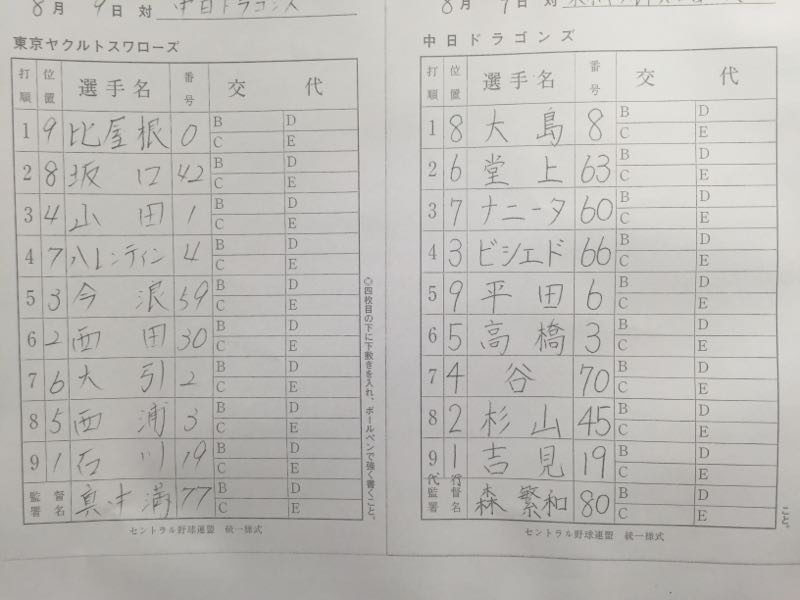 8月 9日 対 中日ドラゴンズ
東京ヤクルトスワローズ
打順 位置 選手名 番号 交代
1 9 比屋根 0 B D C E
2 8 坂口 42 B D C E
3 4 山田 1 B D C E
4 7 バレンティン 4 B D C E
5 3 今浪 59 B D C E
6 2 西田 30 B D C E
7 6 大引 2 B D C E
8 5 西浦 3 B D C E
9 1 石川 19 B D C E
監督署名 真中満 77 B D C E
セントラル野球連盟 統一様式
◎四枚目の下に下敷きを入れ、ボールペンで強く書くこと。
8月 9日 対
中日ドラゴンズ
打順 位置 選手名 番号 交代
1 8 大島 8 B D C E
2 6 堂上 63 B D C E
3 7 ナニータ 60 B D C E
4 3 ビシエド 66 B D C E
5 9 平田 6 B D C E
6 5 高橋 3 B D C E
7 4 谷 70 B D C E
8 2 杉山 45 B D C E
9 1 吉見 19 B D C E
代行
監督署名 森繁和 80 B D C E
セントラル野球連盟 統一様式
こと。